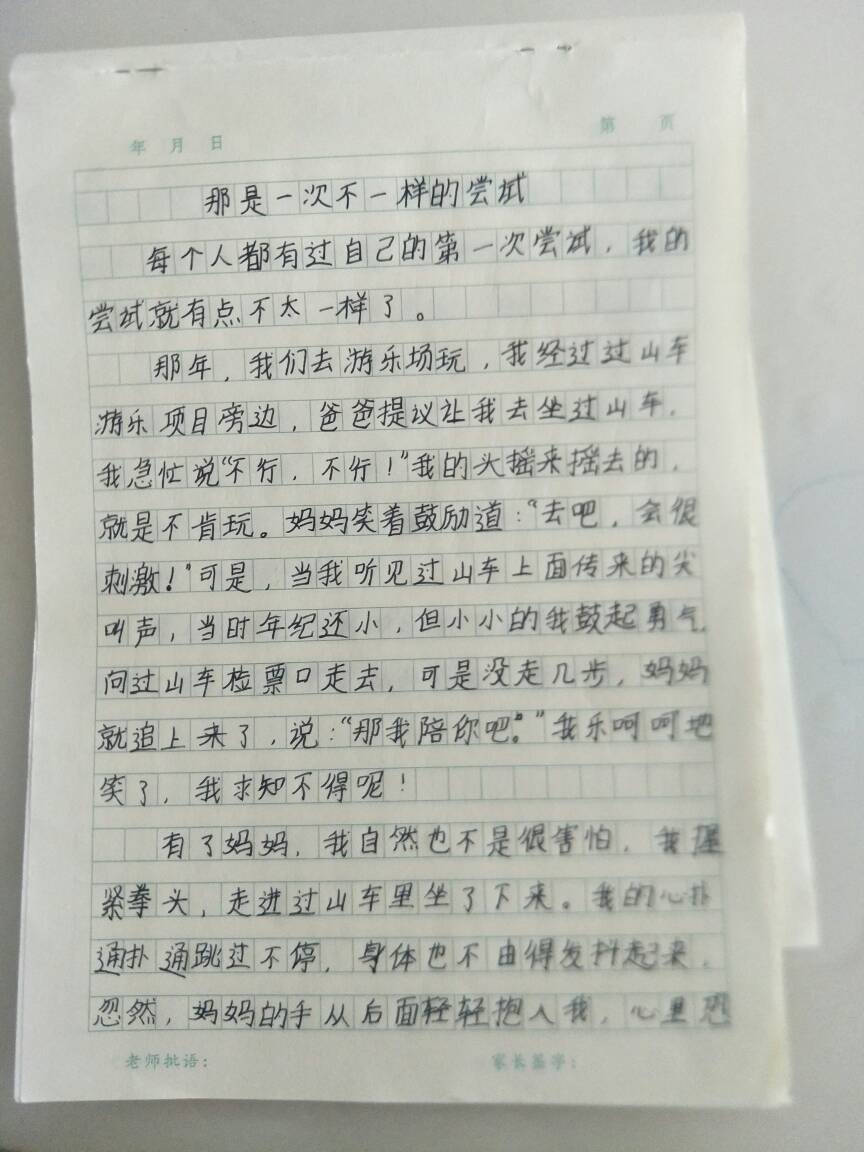 年 月 日 第 页
那是一次不一样的尝试
每个人都有过自己的第一次尝试，我的
尝试就有点不太一样了。
那年，我们去游乐场玩，我经过过山车
游乐项目旁边，爸爸提议让我去坐过山车，
我急忙说“不行，不行！”我的头摇来摇去的，
就是不肯玩。妈妈笑着鼓励道：“去吧，会很
刺激！”可是，当我听见过山车上面传来的尖
叫声，当时年纪还小，但小小的我鼓起勇气，
问过山车检票口走去，可是没走几步，妈妈
就追上来了，说：“那我陪你吧。”我乐呵呵地
笑了，我求知不得呢！
有了妈妈，我自然也不是很害怕，我握
紧拳头，走进过山车里坐了下来。我的心扑
通扑通跳过不停，身体也不由得发抖起来，
忽然，妈妈的手从后面轻轻抱入我，心里恐
老师批语： 家长签字：